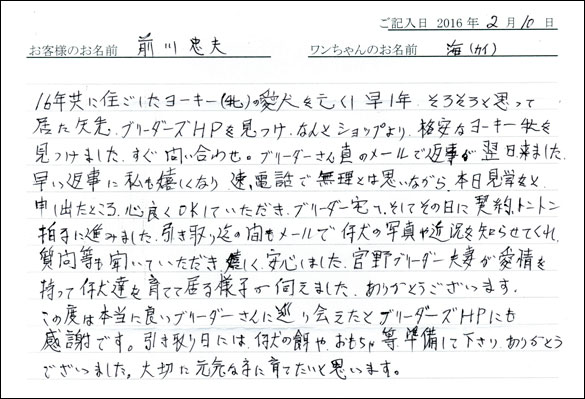 ご記入日 2016 年 2 月 10 日
お客様のお名前 前川忠夫 ワンちゃんのお名前 海(カイ)
16年共に住ごしたヨーキー(牝)の愛犬を亡くし早1年、そろそろと思って
居た矢先、ブリーダーズHPを見つけ、なんとショップより、格安なヨーキー牝を
見つけました。すぐ問い合わせ。ブリーダーさん直のメールで返事が翌日来ました。
早い返事に私も嬉しくなり速、電話で無理とは思いながら、本日見学をと
申し出たところ、心良くOKしていただき、ブリーダー宅で、そしてその日に契約、トントン
拍子に進みました。引き取り迄の間もメールで仔犬の写真や近況を知らせてくれ、
質問等も聞いていただき嬉しく、安心しました。宮野ブリーダー夫妻が愛情を
持って仔犬達を育てて居る様子が伺えました。ありがとうございます。
この度は本当に良いブリーダーさんに巡り会えたとブリーダーズHPにも
感謝です。引き取り日には、仔犬の餌や、おもちゃ等準備して下さり、ありがとう
ございました。大切に元気な子に育てたいと思います。